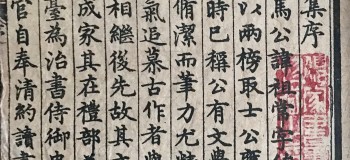 集序
馬公諱祖常字
以兩榜取士公
時巳稱公有文
脩潔而筆力尤
氣追慕古作者
相繼後先故其
成家其在禮部
臺為治書侍御史
官自奉清約讀書